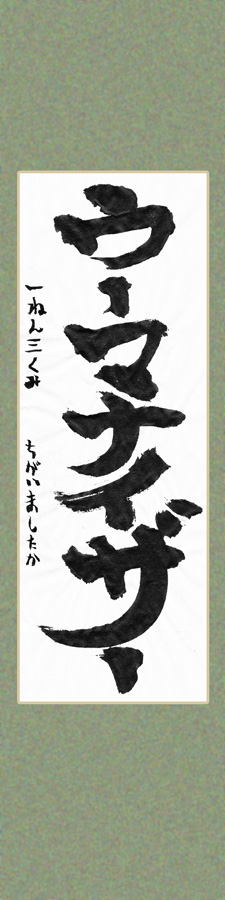 ウーマナイザー
一ねん三くみ ちがいましたか